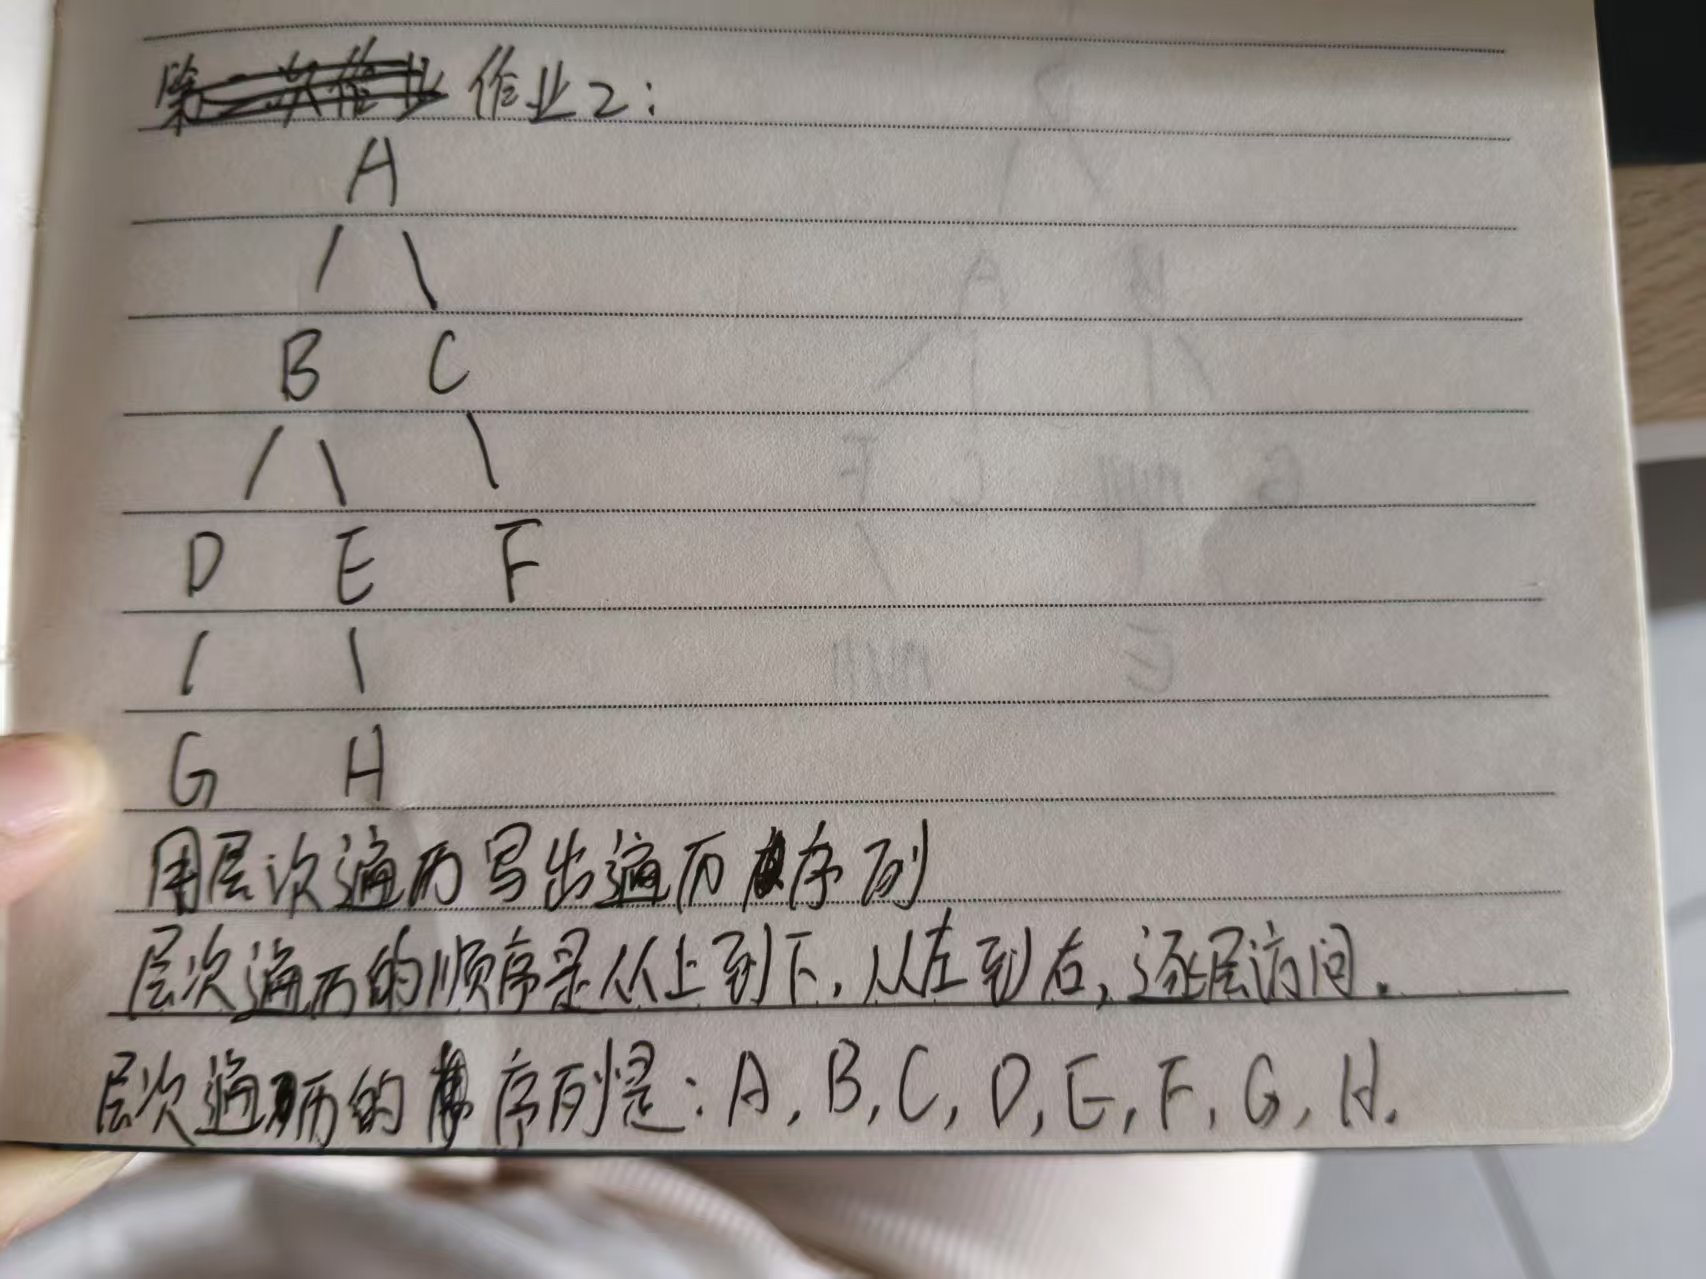 作业2:
A
B C
D E F
G H
用层次遍历写出遍历序列
层次遍历的顺序是从上到下,从左到右,逐层访问.
层次遍历的序列是: A, B, C, D, E, F, G, H.